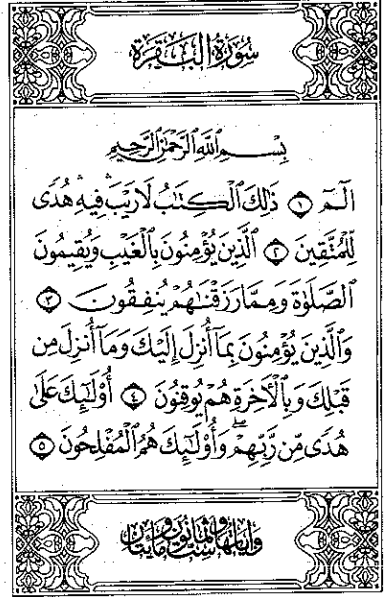 سُورَةُ الْبَقَرَة
بِسْمِ اللَّهِ الرَّحْمَٰنِ الرَّحِيمِ
الٓمٓ ۝١ ذَٰلِكَ الْكِتَٰبُ لَا رَيْبَ ۛ فِيهِ ۛ هُدًى
لِّلْمُتَّقِينَ ۝٢ الَّذِينَ يُؤْمِنُونَ بِالْغَيْبِ وَيُقِيمُونَ
الصَّلَوٰةَ وَمِمَّا رَزَقْنَٰهُمْ يُنفِقُونَ ۝٣
وَالَّذِينَ يُؤْمِنُونَ بِمَآ أُنزِلَ إِلَيْكَ وَمَآ أُنزِلَ مِن
قَبْلِكَ وَبِالْءَاخِرَةِ هُمْ يُوقِنُونَ ۝٤ أُو۟لَٰٓئِكَ عَلَىٰ
هُدًى مِّن رَّبِّهِمْ ۖ وَأُو۟لَٰٓئِكَ هُمُ الْمُفْلِحُونَ ۝٥
وآياتها ست وثمانون ومايتان